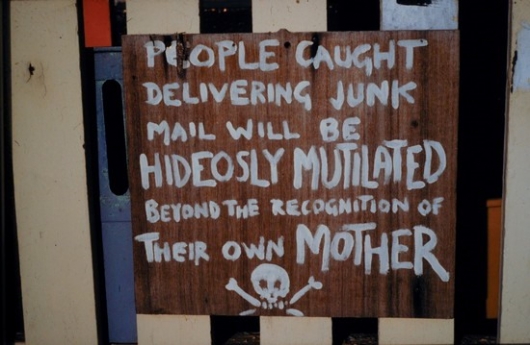 PEOPLE CAUGHT
DELIVERING JUNK
MAIL WILL BE
HIDEOSLY MUTILATED
BEYOND THE RECOGNITION OF
THEIR OWN MOTHER